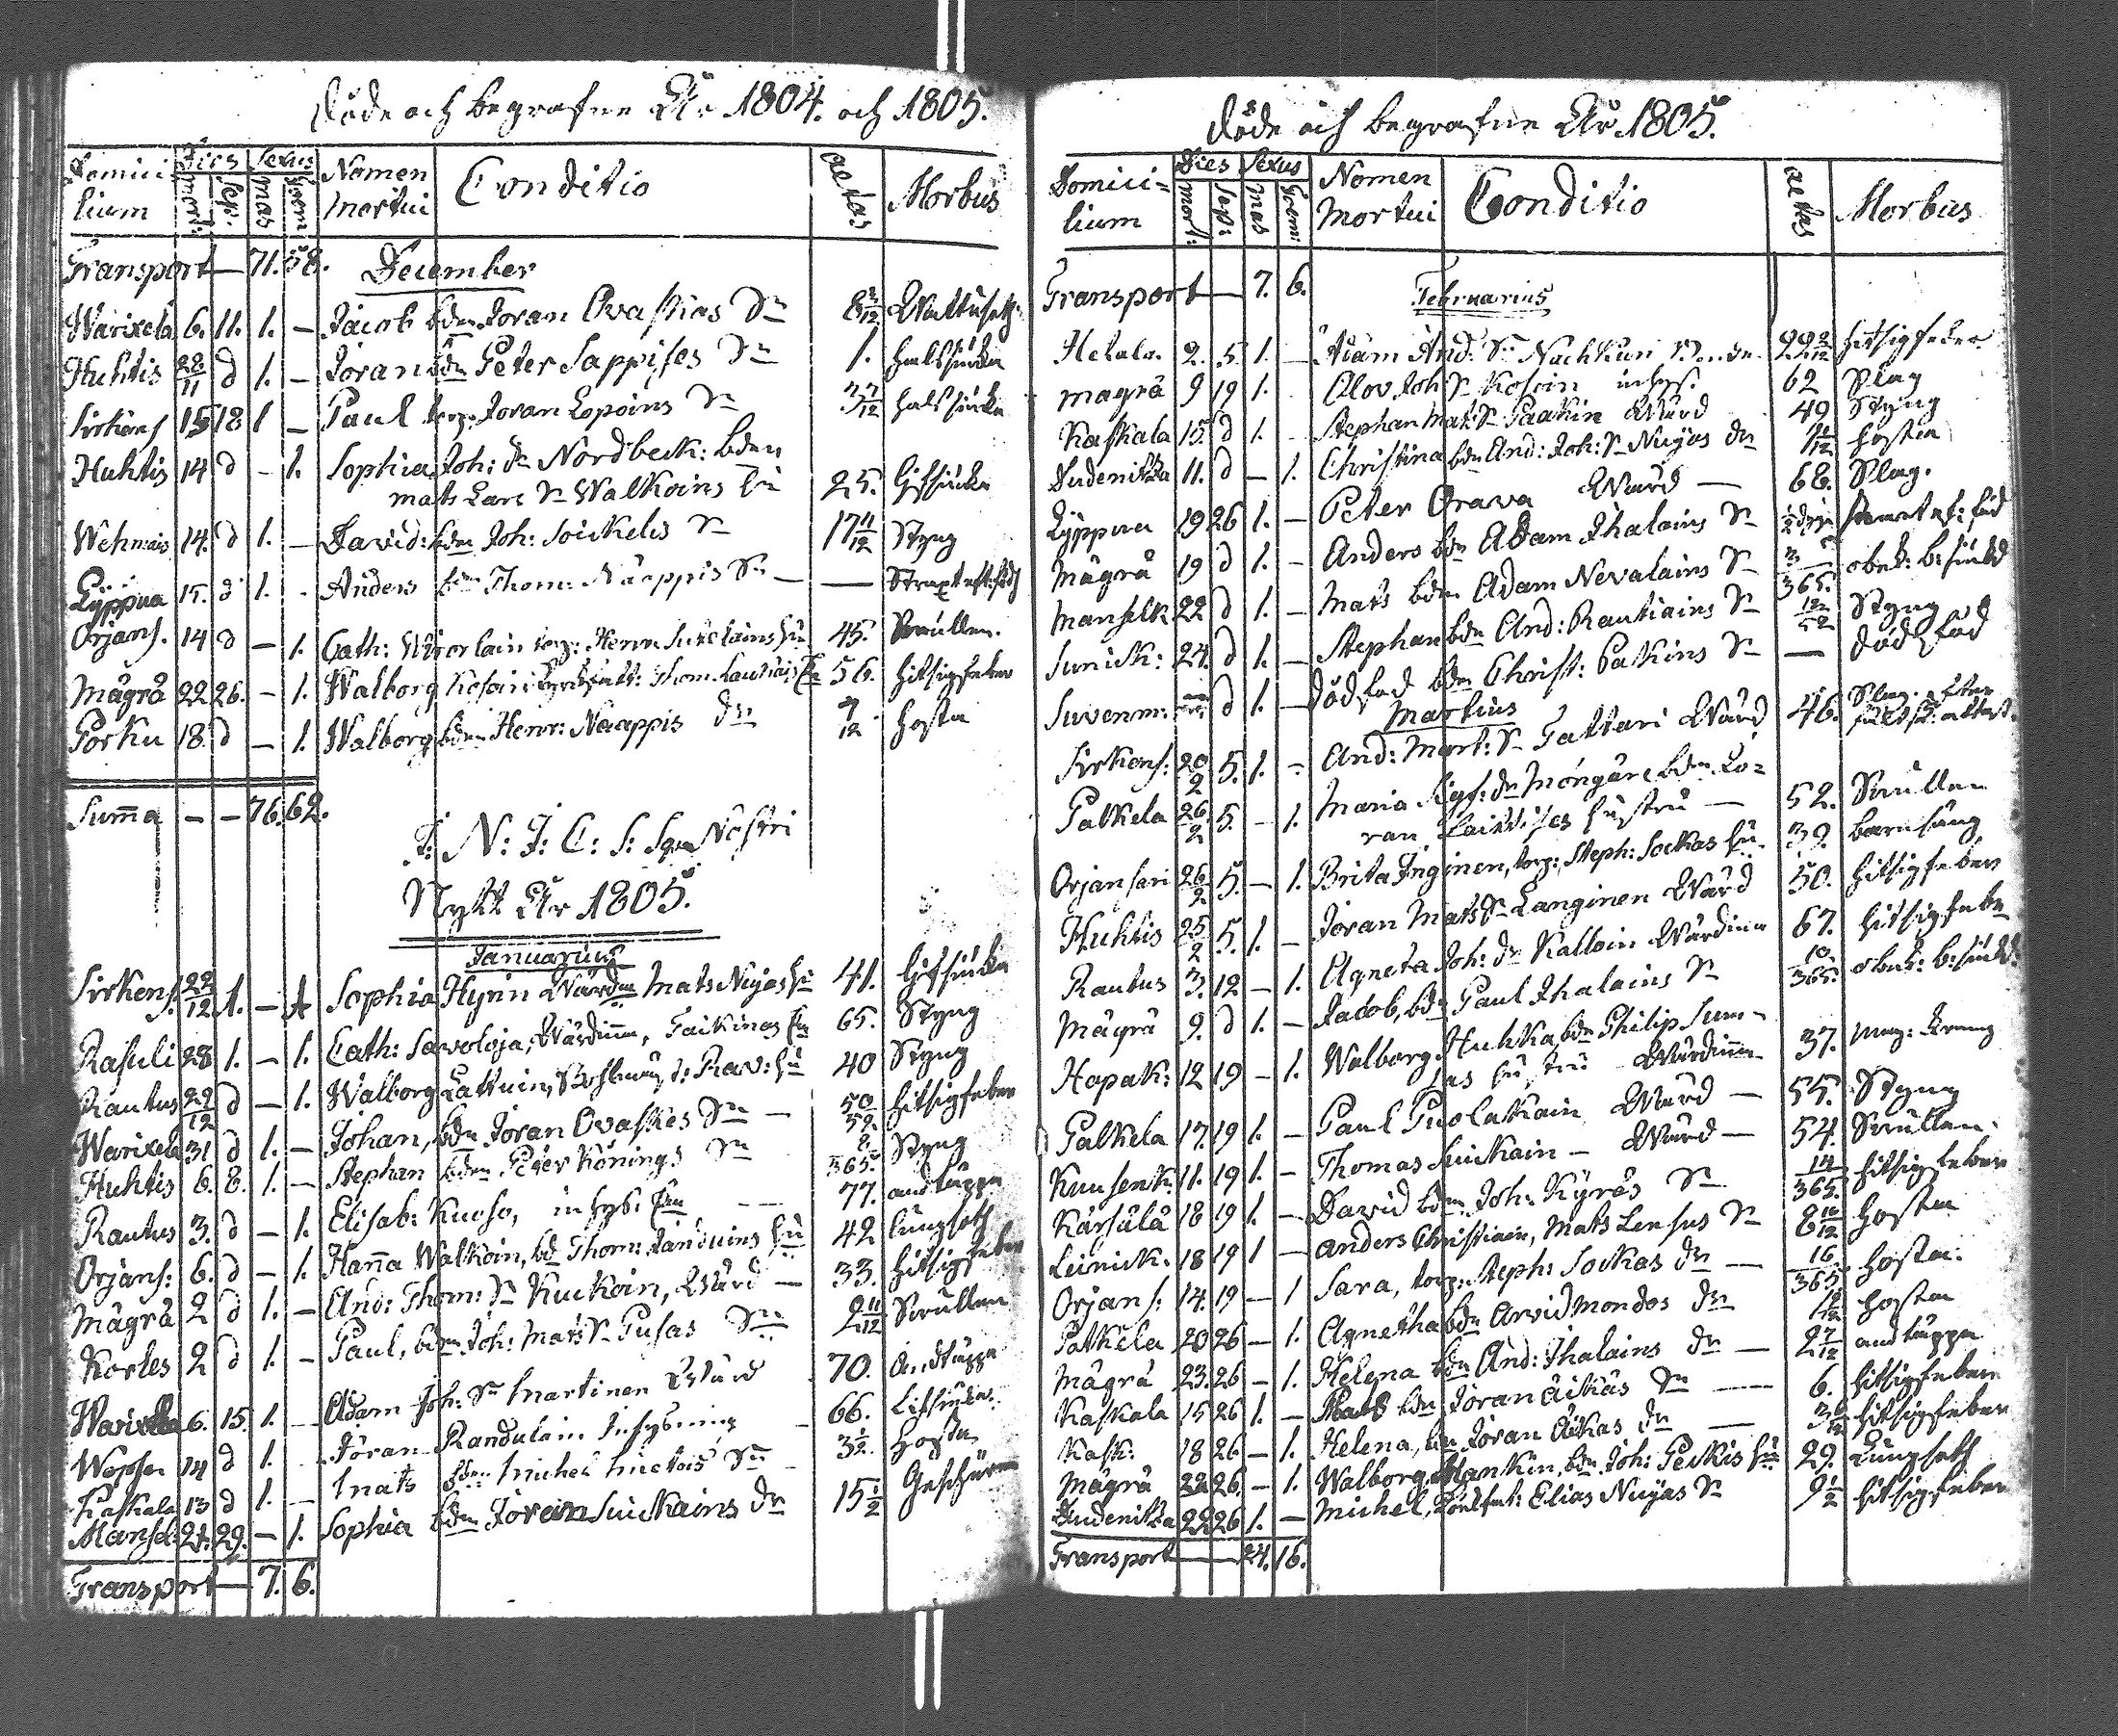 Döde och begrafne År 1804. och 1805.
Domicilium Dies mort: Sep: Sexus mas foem: Nomen mortui Conditio aetas Morbus
Transport — 71. 58. December
Warixela 6. 11. 1. — Jacob bdn Joran Ovaskas Sn 8 2/12
Huhtis 28/11 d 1. — Joran bdn Peter Sappises Sn 1. halssiuka
Sirkans 15 18 1 — Paul torp: Joran Lopoins Sn 3 7/12 halssiuka
Huhtis 14 d - 1. Sophia Joh: dr Nordbeck: bden
mats Lars Sn Walkoins hu 25. Giksiuka
Wehmais 14. d 1. — David: bdn Joh: Soickelis Sn 17 11/12 Styng
Lyppua 15. d 1. - Anders bdn Thom: Näappis Sn — — Straxt eft: född
Orjans. 14 d — 1. Cath: Wirolain torp: Henr: Suikelains hu 45. Swullen.
Mägrä 22 26. — 1. Walborg Kosoin Thom. Lautiais 56. hitsigfeber
Porku 18. d — 1. Walborg bdn Henr: Näappis dr 7/12 hosta
Summa — — 76. 62.
I: N: J: C: S: Sqm Nostri
Nytt År 1805.
Januarius
Sirkens. 22/12 1. — 1 Sophia Hynn Wärdin Mats Nuijas hu 41. Giksiuka
Rasuli 28 1. — 1. Cath: Savoloja, Wärdinna, Taikinas Enk 65. Styng
Rautus 22/12 d — 1. Walborg Lattuin, Rav: hu 40 Styng
Warixela 31 d 1. — Johan, bdn Joran Ovaskas Sn — 50/52 hitsigfeber
Huhtis 6. 8. 1. — Stephan bdn Peter Könings Sn 8/365 Styng
Rautus 3. d — 1. Elisab: Kuoso, inhys: Enk — 77. andtäppa
Orjans: 6. d — 1. Hanna Walkoin, bd Thom: Randuins hu 42 lungsoth
Mägrä 2 d 1. — And: Thom: Sn Kuckoin, Wärd — 33. hitsigfeber
Korles 2 d 1. — Paul, bdn Joh: Mats Sn Pusas Sn 2 11/12 Swullen
Warixela 6. 15. 1. — Adam Joh: Sn Martinen Wärd 70. Andtäppa
14 d 1. — Joran Randulain Inhysning - 66.
Kaskala 13 d 1. — Mats bdn Michel Mietois Sn 3 1/2. Hosta
Mansel: 21. 29. — 1. Sophia bdn Joran Suickains dr 15 1/2
Transport — 7. 6.
Döde och begrafne År 1805.
Domicilium Dies mort: Sep: Sexus mas Foem: Nomen mortui Conditio aetas Morbus
Transport — 7. 6. Februarius
Hetala. 2. 5. 1. — Adam And: Sn Nachkuri 22 2/12 hitsigfeber
Mägrä 9 19 1. Olov Joh Sn Kosoin inhys. 62 Slag
Kaskala 15. d 1. - Stephan Mats Sn Paakin Wärd 49 Styng
Dudenitza 11. d — 1. Christina bdn And: Joh: Sn Nuijas dr hosta
Lyppua 19 26 1. — Peter Orava Wärd — 68. Slag.
Mägrä 19 d 1. — Anders bdn Adam Ihalains Sn 1/2 straxt ef: föd
Manselk 22 d 1. — Mats bdn Adam Nevalains Sn 3/365. obek: b: siukd
Sunick: 24. d 1. — Stephan bdn And: Rautiains Sn 12/52 Styng
Suvenm: d 1. — Dödfod bdn Christ: Patkins Sn — död född
Martius
Sirkans: 20/2 5. 1. — And: Mart: Sn Tattari Wärd 46. Slag.
Palkela 26/2 5. — 1. Maria Sigf: dr Möngäre bdn Jö-
ran Laitises hustru — 52. Swullen
Orjansari 26/2 5. — 1. Brita Inginen, torp: Steph: Sockas hu. 39. barnsäng
Huhtis 25/2 5. 1. — Joran Mats Sn Langinen Wärd 50. hitsigfeber
Rautus 3. 12 — 1. Agneta Joh: dr Kalloin Wärdina 67. hitsigfeber
Mägrä 9. d 1. — Jacob, bdn Paul Ihalains Sn 10/365. obek: b: siukd:
Hapak: 12 19 — 1. Walborg Huhka, bdn Philip Sum-
as hustru Wärdinna 37. Mag: Kramp
Palkela 17. 19 1. — Paul Puolakain Wärd — 55. Styng
Kuusenk: 11. 19 1. — Thomas Suickain — Wärd — 54. Swullen.
Kärsälä 18 19 1. — David bdn Joh: Kyräs Sn 14/365. hitsigfeber
Leinick: 18 19 1 — Anders Christiain, Mats Lensus Sn 8 10/12 hosta
Orjans: 14. 19 — 1 Sara, torp: Steph: Sockas dr — 16/365 hosta.
Palkela 20 26 — 1. Agnetha bdn Arvid Mondos dr hosta
Mägrä 23. 26 — 1. Helena bdn And: Ihalains dr — 2 7/12 andtäppa
Kaskala 15 26 1. — Mats bdn Joran Äikäs Sn — 6. hitsigfeber
Kask: 18 26 — 1. Helena, bdn Joran Äikas dr — hitsigfeber
Mägrä 22 26. — 1. Walborg Mankin, bdn Joh: Peckis hu 29. Lungsoth
Dudenitza 22 26 1. — Michel, Elias Nuijas Sn 9 1/2 hitsigfeber
Transport — 24. 16.